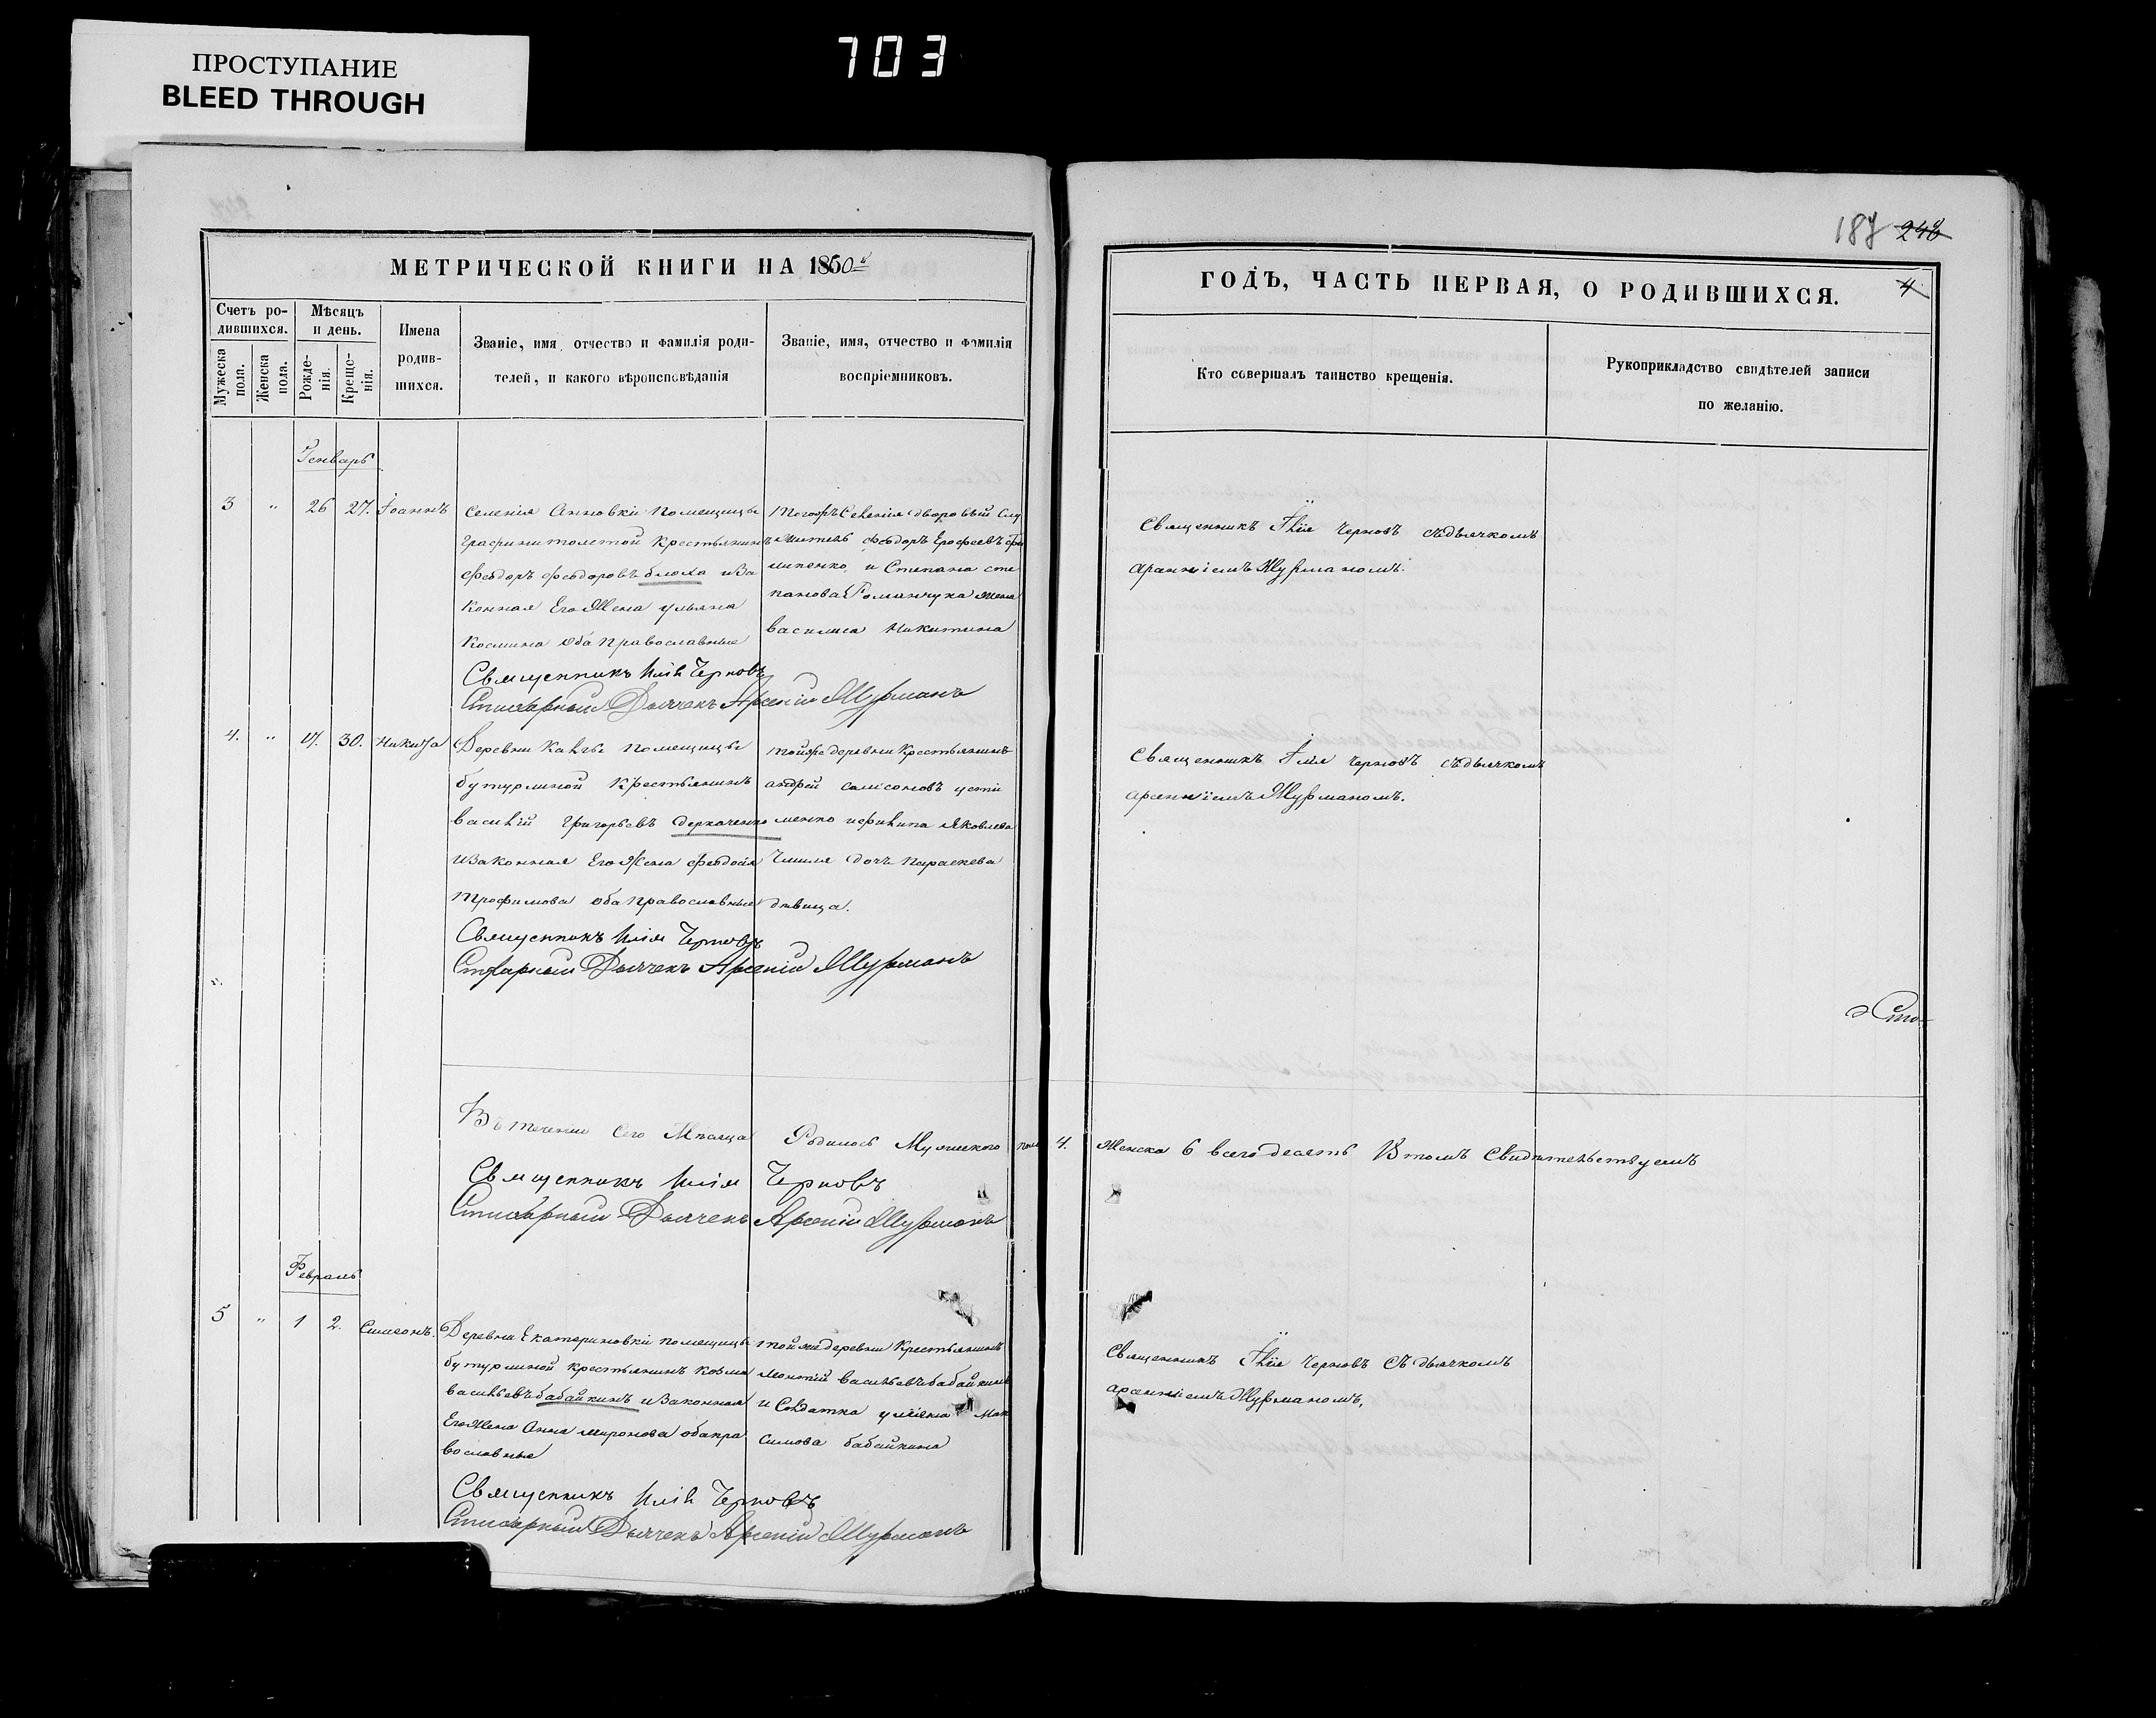 ПРОСТУПАНИЕ
BLEED THROUGH
703
МЕТРИЧЕСКОЙ КНИГИ НА 1860й
Счетъ ро-
дившихся.
Мужеска
пола.
Женска
пола.
Мѣсяцъ
и день.
Рожде-
нія.
Креще-
нія.
Имена
родив-
шихся.
Званіе, имя отчество и фамилія роди-
телей, и какого вѣроисповѣданія
Званіе, имя, отчество и фамилія
воспріемниковъ.
Генварь
3 " 26 27. Іоаннъ
Селенія Анновки Помещицы
Графини толстой Крестьянинъ
Феодоръ Феодоровъ блоха иза
конная Его Жена ульяна
Космина оба православные
Селенія дворовый Слу
житель Феодоръ Ерофеевъ Фи
липенко, и Степана сте
панова Романчука жена
василиса Никитина
Священникъ Илія Черновъ
Дьячекъ Арсеній Журманъ
4. " 17. 30. Никита
Деревни Помещицы
бутурлиной Крестьянинъ
василій григорьевъ деркаченко
изаконная Его Жена Феодосія
трофимова оба православные
тойже деревни Крестьянинъ
андрей самсоновъ усти
менко ифилипа Яковлева
дочь параскева
дѣвица.
Священникъ Илія Черновъ
Дьячекъ Арсеній Журманъ
Въ течении Сего Мѣсяца Родилось Мужескаго пола 4. Женска 6 всего десять Втомъ Свидѣтельствуемъ
Священникъ Илія Черновъ
Дьячекъ Арсеній Журманъ
Февраль
5 " 1 2. Симеонъ.
Деревни Екатериновки помещицы
бутурлиной крестьянинъ козма
васильевъ бабайкинъ изаконная
Его Жена Анна миронова обапра
вославные
тойже деревни Крестьянинъ
леонтій васильевъ бабайкинъ
и Солдатка уліяна Мак
симова бабайкина
Священникъ Илія Черновъ
Дьячекъ Арсеній Журманъ
187 248
ГОДЪ, ЧАСТЬ ПЕРВАЯ, О РОДИВШИХСЯ. 4
Кто совершалъ таинство крещенія.
Рукоприкладство свидѣтелей записи
по желанію.
Священникъ Ілія Черновъ съдьячкомъ
арсеніемъ Журманомъ.
Священникъ Ілія черновъ съдьячкомъ
арсеніемъ Журманомъ.
Сто-
Священникъ Ілія Черновъ Съ дьячкомъ
арсеніемъ Журманомъ.